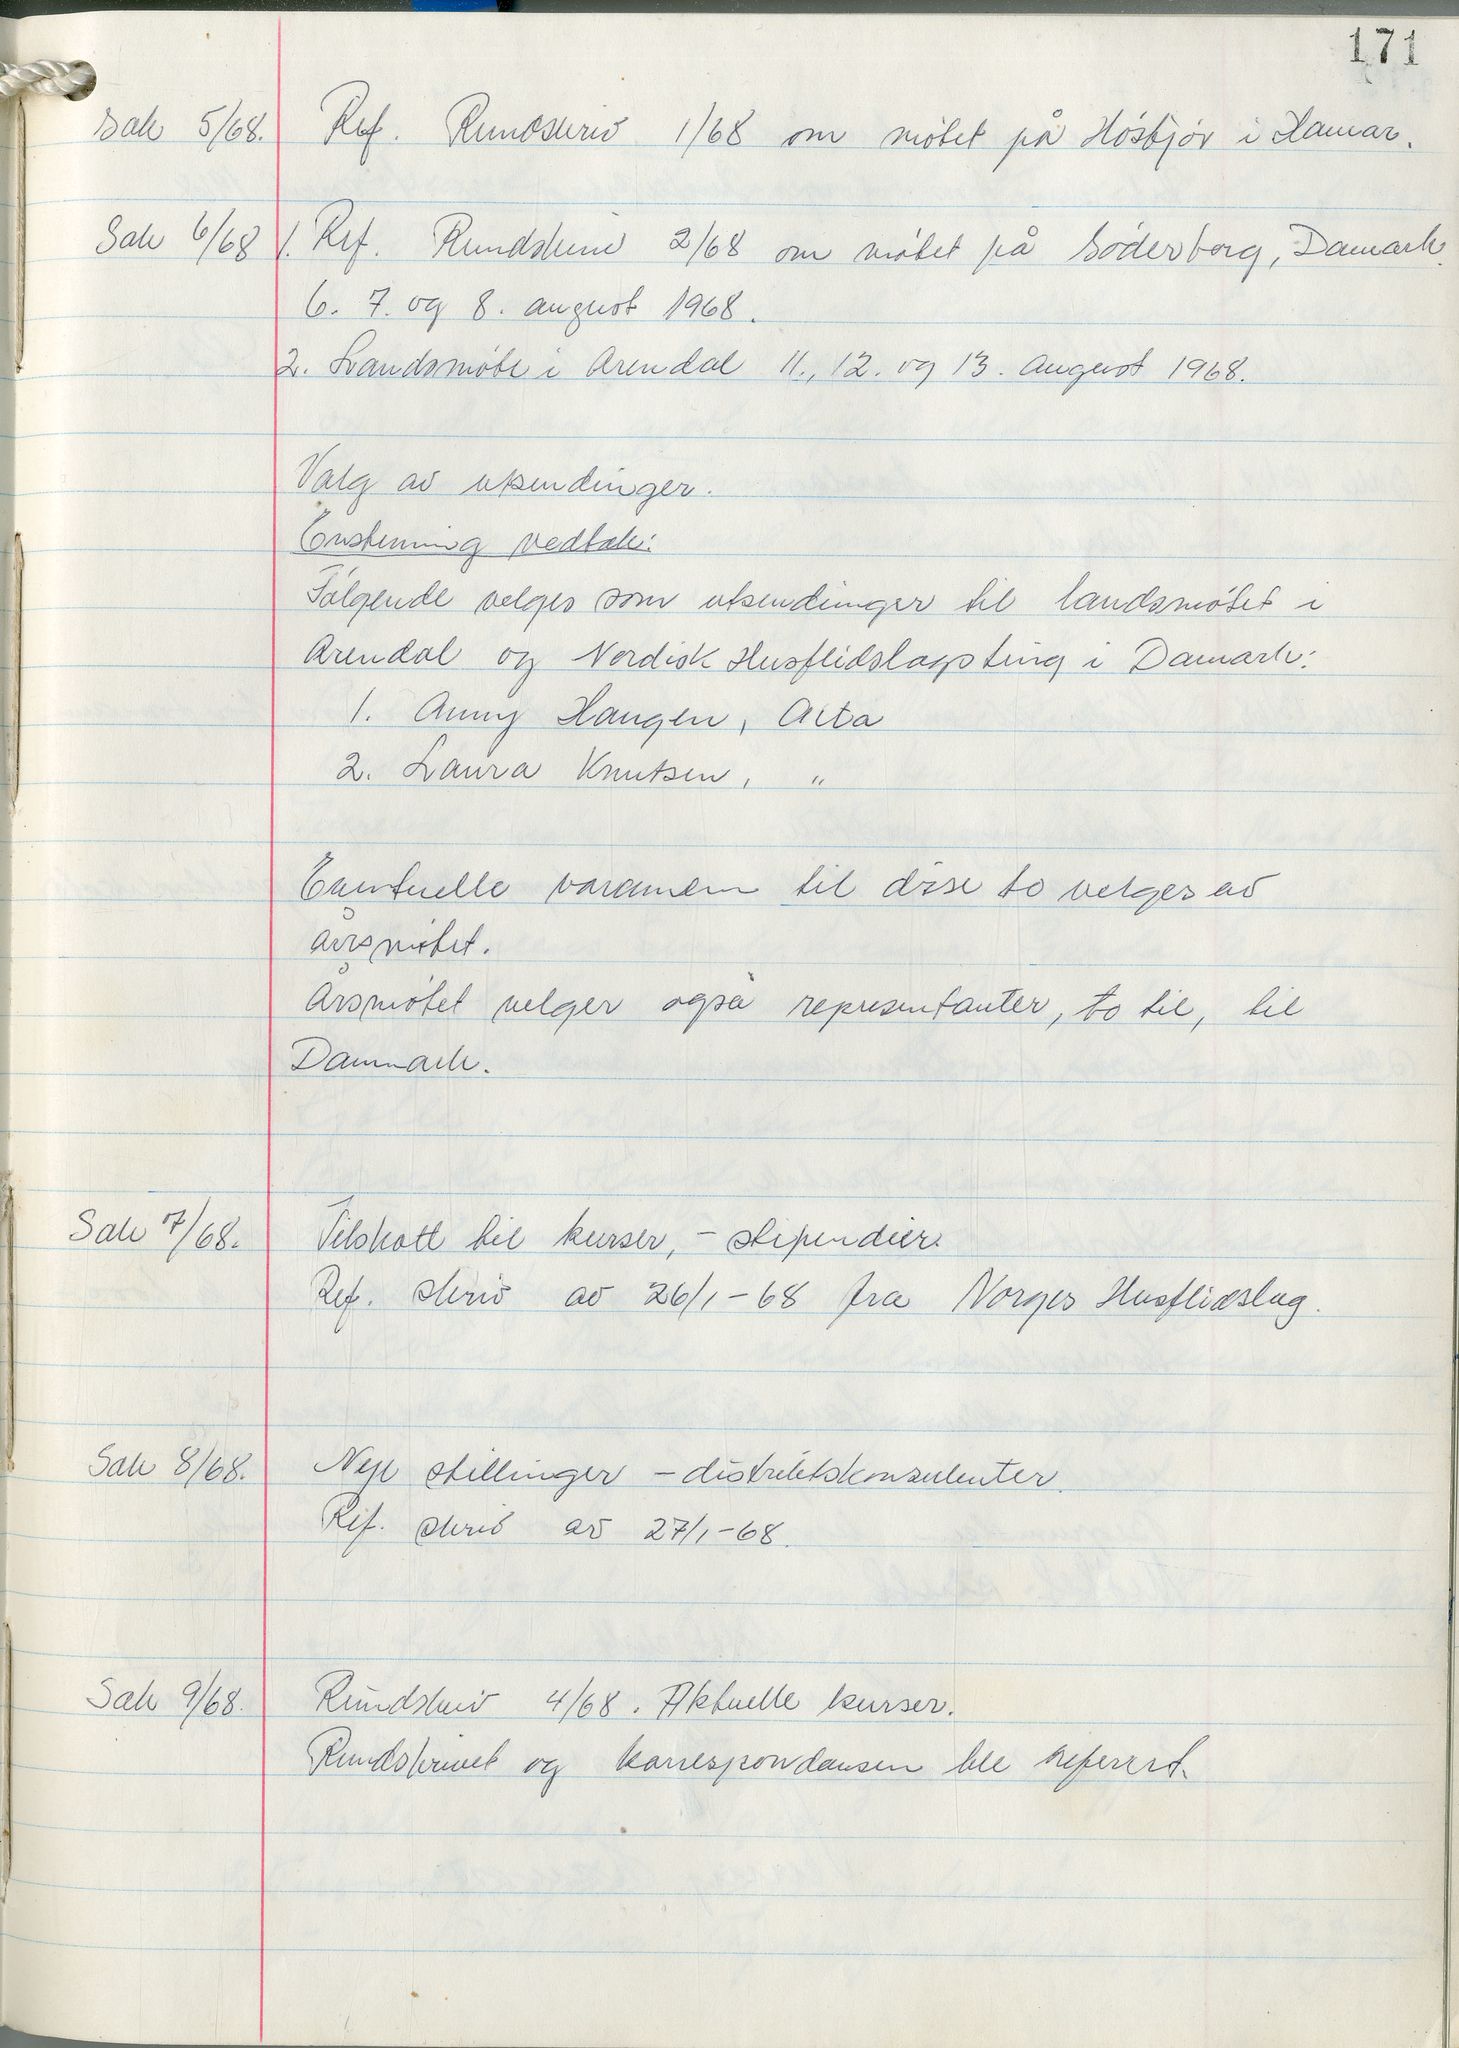 171
Sak 5/68. Ref. Rundskriv 1/68 om møtet på Høsbjør i Hamar.
Sak 6/68 1. Ref. Rundskriv 2/68 om møtet på Søderborg, Damark.
6. 7. og 8. august 1968.
2. Landsmøte i Arendal 11., 12. og 13. august 1968.
Valg av utsendinger.
Enstemmig vedtak:
Følgende velges som utsendinger til landsmøtet i
Arendal og Nordisk Husflidslagsting i Damark:
1. Anny Haugen, Alta
2. Laura Knutsen, "
Eventuelle varamenn til disse to velges av
årsmøtet.
Årsmøtet velger også representanter, to til, til
Danmark.
Sak 7/68. Tilskott til kurser, - stipendier.
Ref. skriv av 26/1-68 fra Norges Husflidslag.
Sak 8/68. Nye stillinger - distriktskonsulenter.
Ref. skriv av 27/1-68.
Sak 9/68. Rundskriv 4/68. Aktuelle kurser.
Rundskrivet og korrespondansen ble referert.